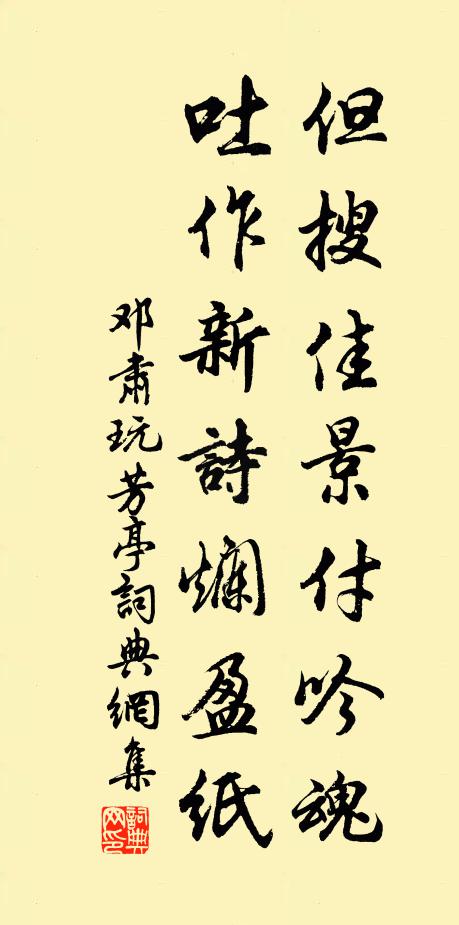 但搜佳景付吟魂
吐作新詩爛盈紙
邓肅玩芳亭詞典網集
詞典网印